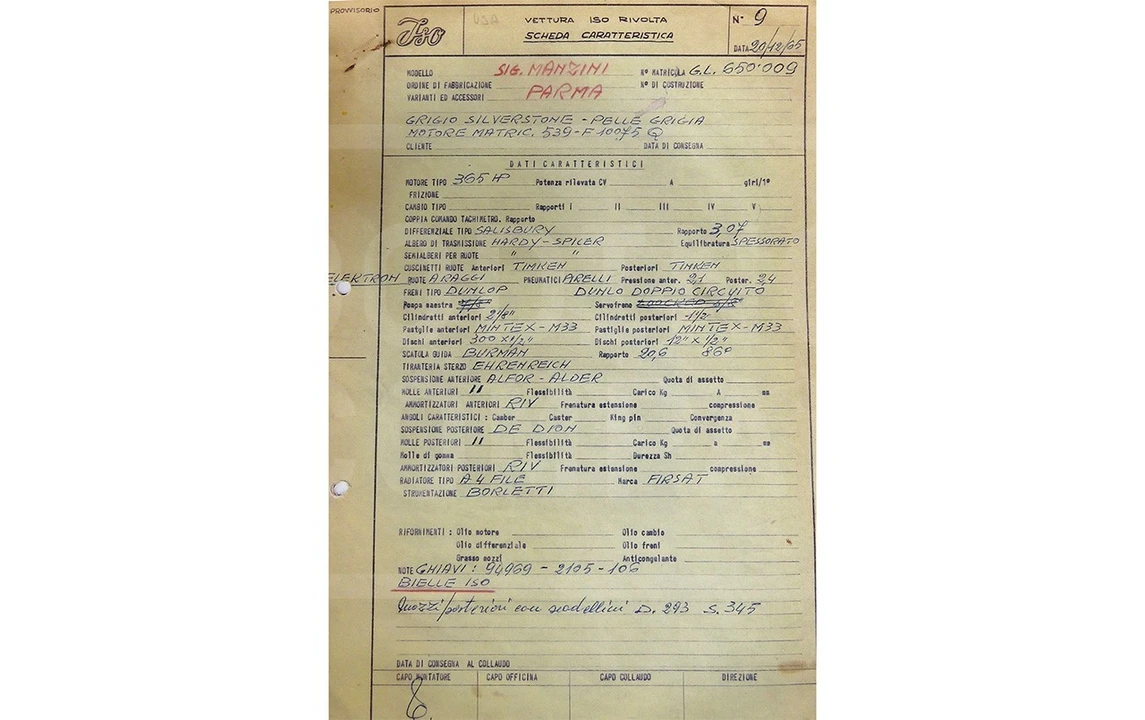 PROVVISORIO
Iso
USA
VETTURA ISO RIVOLTA
SCHEDA CARATTERISTICA
N° 9
DATA 20/12/65
MODELLO SIG. MANZINI N° MATRICOLA G.L. 650.009
ORDINE DI FABBRICAZIONE PARMA N° DI COSTRUZIONE
VARIANTI ED ACCESSORI
GRIGIO SILVERSTONE - PELLE GRIGIA
MOTORE MATRIC. 539-F10075 Q
CLIENTE DATA DI CONSEGNA
DATI CARATTERISTICI
MOTORE TIPO 365 HP Potenza rilevata CV A giri/1°
FRIZIONE
CAMBIO TIPO Rapporti I II III IV V
COPPIA COMANDO TACHIMETRO. Rapporto
DIFFERENZIALE TIPO SALISBURY Rapporto 3,07
ALBERO DI TRASMISSIONE HARDY-SPICER Equilibratura SPESSORATO
SEMIALBERI PER RUOTE " "
CUSCINETTI RUOTE Anteriori TIMKEN Posteriori TIMKEN
ELEKTRON RUOTE ARAGGI PNEUMATICI ARELLI Pressione anter. 2,1 Poster. 2,4
FRENI TIPO DUNLOP DUNLO DOPPIO CIRCUITO
Pompa maestra 7/8" Servofreno
Cilindretti anteriori 2 1/8" Cilindretti posteriori 1 1/2"
Pastiglie anteriori MINTEX-M33 Pastiglie posteriori MINTEX-M33
Dischi anteriori 300 x 1/2" Dischi posteriori 12" x 1/2"
SCATOLA GUIDA BURMAN Rapporto 20,6 86°
TIRANTERIA STERZO EHRENREICH
SOSPENSIONE ANTERIORE ALFOR-ALDER Quota di assetto
MOLLE ANTERIORI " Flessibilità Carico Kg A mm
AMMORTIZZATORI ANTERIORI RIV Frenatura estensione compressione
ANGOLI CARATTERISTICI : Camber Caster King pin Convergenza
SOSPENSIONE POSTERIORE DE DION Quota di assetto
MOLLE POSTERIORI " Flessibilità Carico Kg a mm
Molle di gomma Flessibilità Durezza Sh
AMMORTIZZATORI POSTERIORI RIV Frenatura estensione compressione
RADIATORE TIPO A 4 FILE Marca FIRSAT
STRUMENTAZIONE BORLETTI
RIFORNIMENTI : Olio motore Olio cambio
Olio differenziale Olio freni
Grasso mozzi Anticongelante
NOTE GHIAVI: 94969 - 2105 - 106
BIELLE ISO
Mozzi posteriori con scodellini D. 293 S. 345
DATA DI CONSEGNA AL COLLAUDO
CAPO MONTATORE CAPO OFFICINA CAPO COLLAUDO DIREZIONE